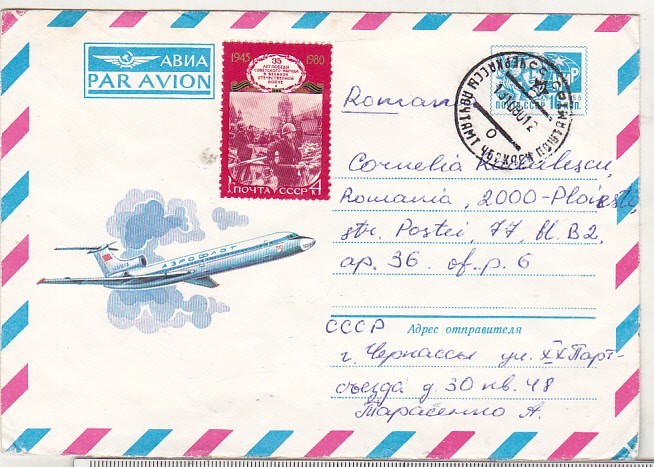 АВИА
PAR AVION
1945 1980
35
ЛЕТ ПОБЕДЫ
СОВЕТСКОГО НАРОДА
В ВЕЛИКОЙ
ОТЕЧЕСТВЕННОЙ
ВОЙНЕ
ПОЧТА СССР 4
ПОЧТА СССР
Romania
Cornelia
Romania, 2000-Ploiesti,
str. Postei, 77, bl. B2,
ap. 36. of. p. 6
АЭРОФЛОТ
СССР
Адрес отправителя
г. Черкассы ул. XX Парт-
съезда д. 30 кв. 48
Тарасенко А.